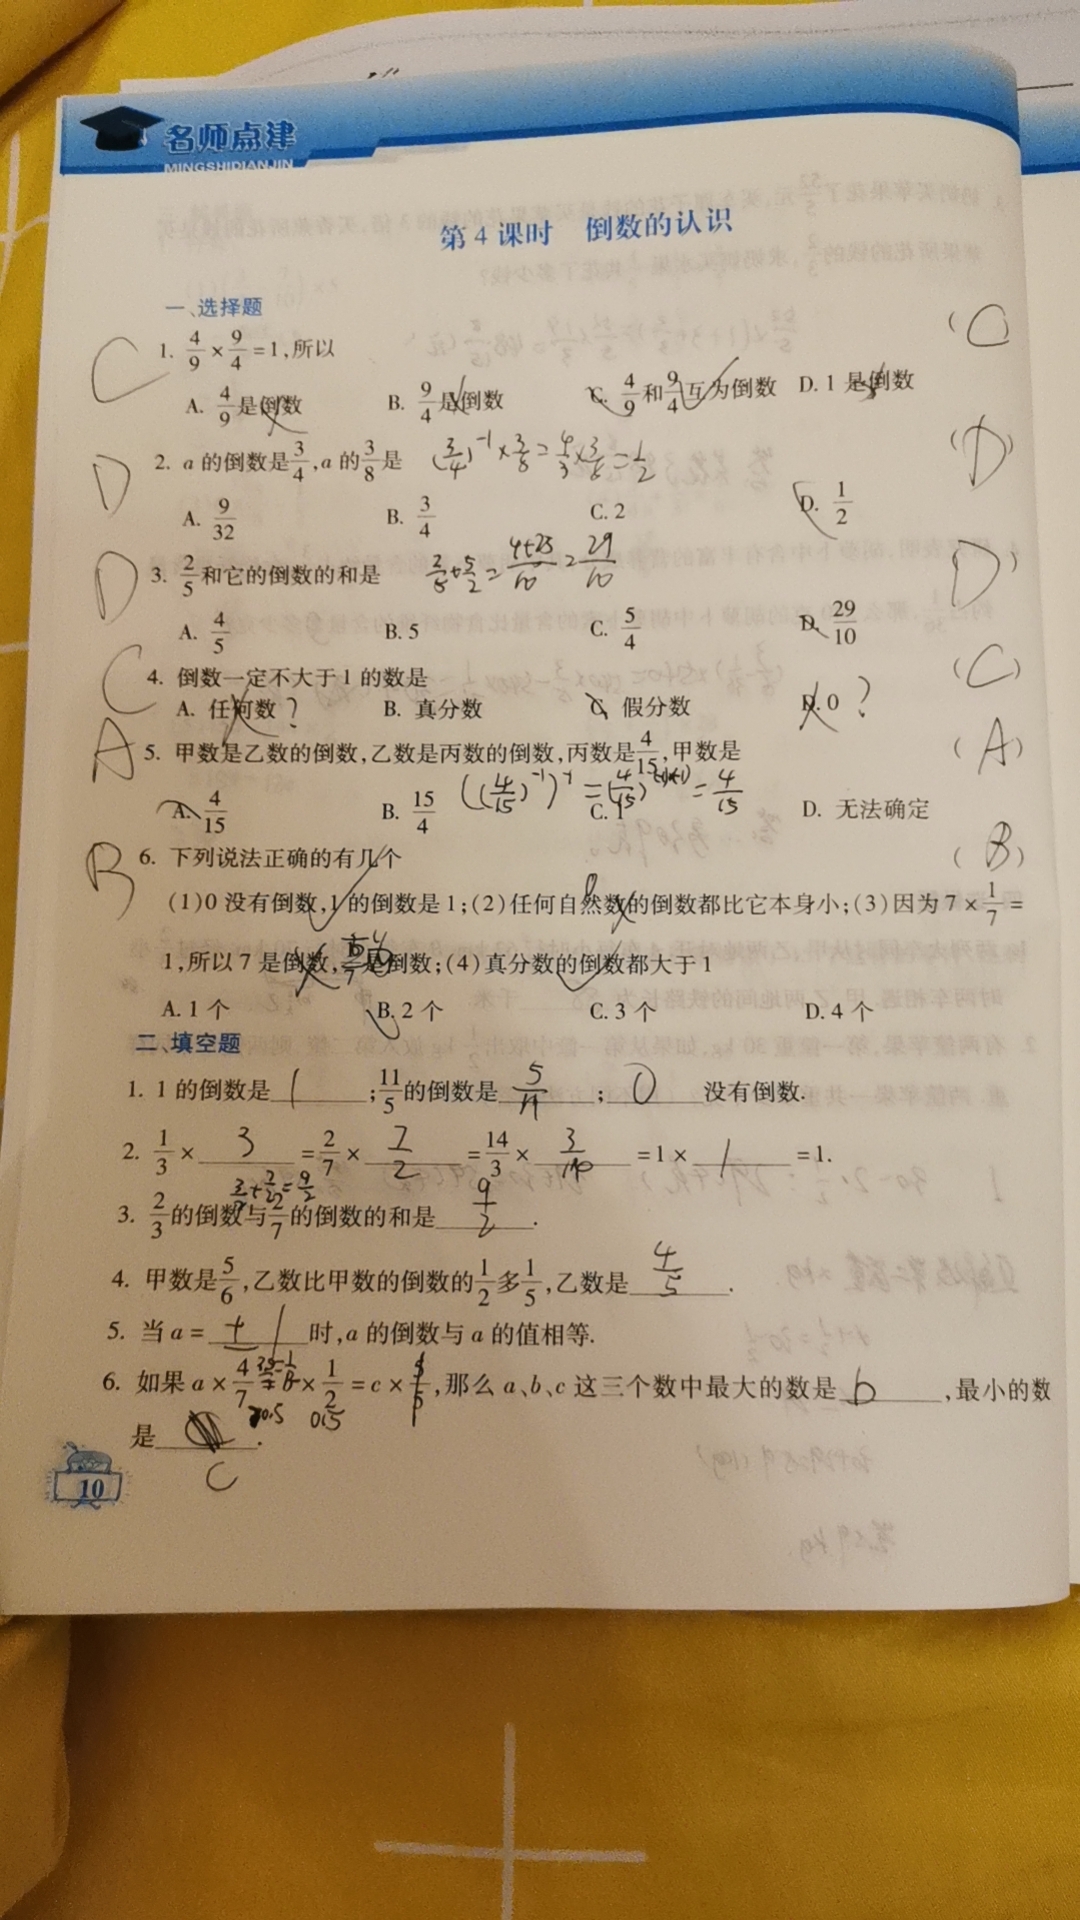 名师点津
MINGSHIDIANJIN
第4课时 倒数的认识
一、选择题
C 1. 4/9×9/4=1,所以 (C)
A. 4/9是倒数 B. 9/4是倒数 C. 4/9和9/4互为倒数 D. 1是倒数
D 2. a的倒数是3/4,a的3/8是 (3/4)^-1×3/8=4/3×3/8=1/2 (D)
A. 9/32 B. 3/4 C. 2 D. 1/2
D 3. 2/5和它的倒数的和是 2/5+5/2=4+25/10=29/10 (D)
A. 4/5 B. 5 C. 5/4 D. 29/10
C 4. 倒数一定不大于1的数是 (C)
A. 任何数? B. 真分数 C. 假分数 D. 0 ?
A 5. 甲数是乙数的倒数,乙数是丙数的倒数,丙数是4/15,甲数是 (A)
((4/15)^-1)^-1=(4/15) =4/15
A. 4/15 B. 15/4 C. 1 D. 无法确定
B 6. 下列说法正确的有几个 (B)
(1)0没有倒数,1的倒数是1;(2)任何自然数的倒数都比它本身小;(3)因为7×1/7=
1,所以7是倒数,1/7是倒数;(4)真分数的倒数都大于1
A. 1个 B. 2个 C. 3个 D. 4个
二、填空题
1. 1的倒数是 1 ;11/5的倒数是 5/11 ; 0 没有倒数.
2. 1/3× 3 =2/7× 7/2 =14/3× 3/14 =1× 1 =1.
3/2+7/2=9/2
3. 2/3的倒数与2/7的倒数的和是 9/2 .
4. 甲数是5/6,乙数比甲数的倒数的1/2多1/5,乙数是 4/5 .
5. 当a= ±1 时,a的倒数与a的值相等.
6. 如果a×4/7=b×1/2=c×5/5,那么a、b、c这三个数中最大的数是 b ,最小的数
0.5
是 .
C
10